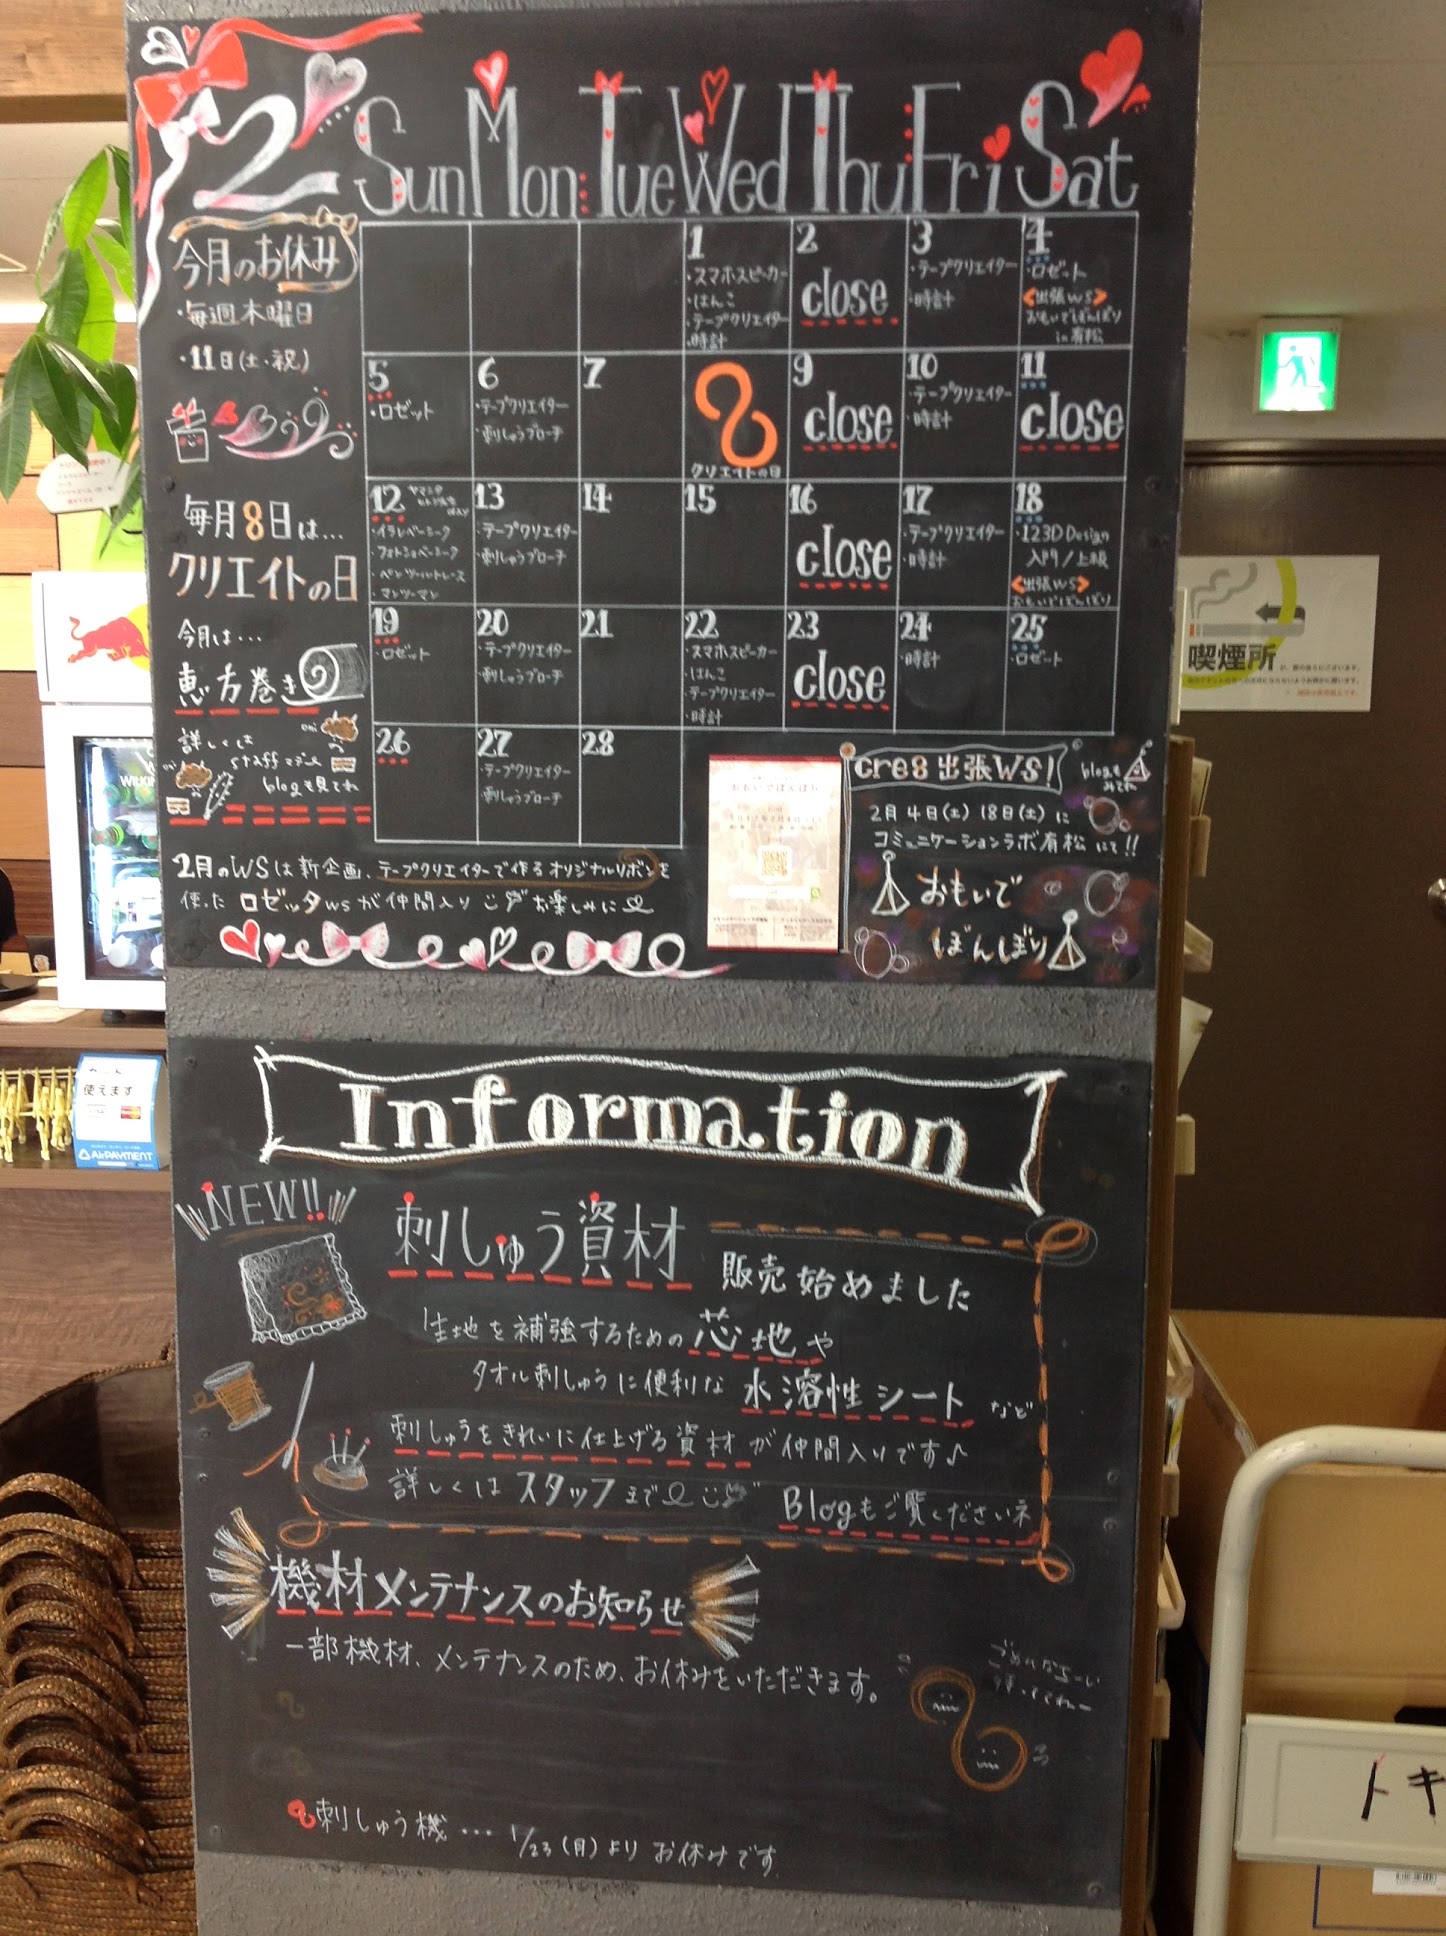 2 Sun Mon Tue Wed Thu Fri Sat
今月のお休み
・毎週木曜日
・11日(土・祝)
毎月8日は…
クリエイトの日
今月は…
恵方巻き
詳しくは
staffマデ
blogを見てね
1
・スマホスピーカー
・はんこ
・テープクリエイター
・時計
2
close
3
・テープクリエイター
・時計
4
・ロゼット
<出張WS>
おもいでぼんぼり
in有松
5
・ロゼット
6
・テープクリエイター
・刺しゅうブローチ
7
8
クリエイトの日
9
close
10
・テープクリエイター
・時計
11
close
12
・イラレベーシーク
・フォトショベーシーク
・ペンツールトレース
・マンツーマン
13
・テープクリエイター
・刺しゅうブローチ
14
15
16
close
17
・テープクリエイター
・時計
18
・123D Design
入門/上級
<出張WS>
おもいでぼんぼり
19
・ロゼット
20
・テープクリエイター
・刺しゅうブローチ
21
22
・スマホスピーカー
・はんこ
・テープクリエイター
・時計
23
close
24
・時計
25
・ロゼット
26
27
・テープクリエイター
・刺しゅうブローチ
28
2月のWSは新企画、テープクリエイターで作るオリジナルリボンを
使った ロゼッタwsが仲間入り お楽しみに
おもいでぼんぼり
cre8出張WS!
blogも
みてね
2月4日(土)18日(土)に
コミュニケーションラボ有松にて!!
おもいで
ぼんぼり
Information
NEW!!
刺しゅう資材
販売始めました
生地を補強するための芯地や
タオル刺しゅうに便利な 水溶性シート など
刺しゅうをきれいに仕上げる資材が仲間入りです♪
詳しくはスタッフまで
Blogもご覧くださいネ
機材メンテナンスのお知らせ
一部機材、メンテナンスのため、お休みをいただきます。
刺しゅう機…1/23(月)よりお休みです
喫煙所
使えます
AirPAYMENT
トキ